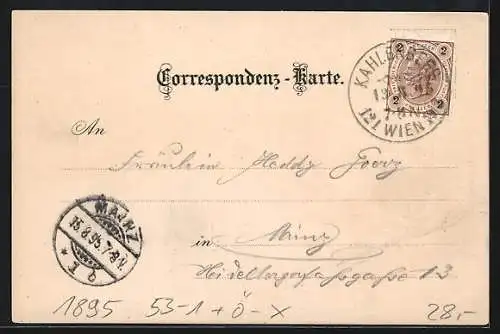 Correspondenz-Karte.
2 2
2 2
KAHLENBERG
121 WIEN
An
Fräulein Heddy Goerz
MAINZ
15.8.95.7-8V.
in Mainz
13
1895 53-1+Ö-X
28,-